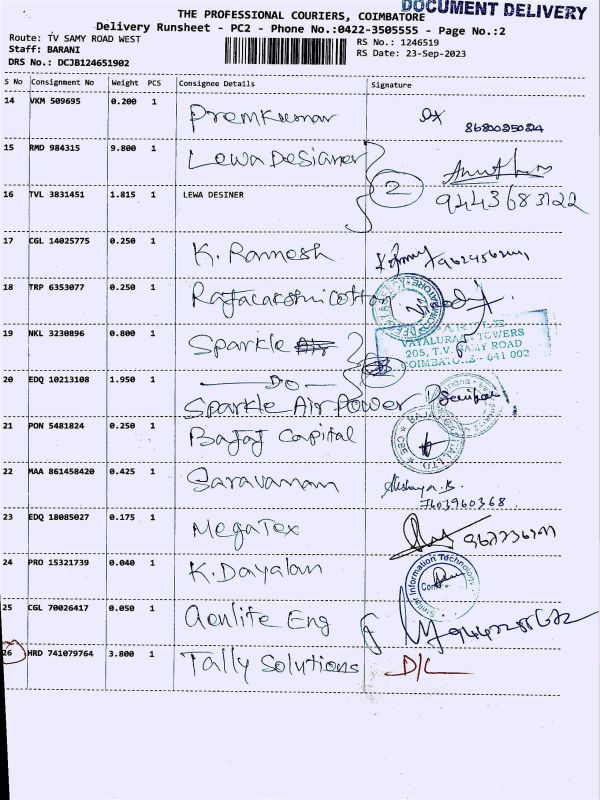 DOCUMENT DELIVERY
THE PROFESSIONAL COURIERS, COIMBATORE
Delivery Runsheet - PC2 - Phone No.:0422-3505555 - Page No.:2
Route: TV SAMY ROAD WEST RS No.: 1246519
Staff: BARANI RS Date: 23-Sep-2023
DRS No.: DCJB124651902
S No Consignment No Weight PCS Consignee Details Signature
14 VKM 509695 0.200 1 Premkumar
15 RMD 984315 9.800 1 Lewa Desianer
2
9443683122
16 TVL 3831451 1.815 1 LEWA DESINER
17 CGL 14025775 0.250 1 K. Ramesh
18 TRP 6353077 0.250 1 Rajalakshmi Cotton
19 NKL 3230896 0.800 1 Sparkle
TOWERS
205, T.V. SAMY ROAD
COIMBATORE - 641 002
20 EDQ 10213108 1.950 1 DO
Sparkle Air Power
21 PON 5481824 0.250 1 Bajaj Capital
22 MAA 861458420 0.425 1 Saravanan
Akshaya.B.
7603960368
23 EDQ 18085027 0.175 1 MegaTex
24 PRO 15321739 0.040 1 K. Dayalan
Similar Information Technology
25 CGL 70026417 0.050 1 Aenlife Eng
26 HRD 741079764 3.800 1 Tally Solutions D/L